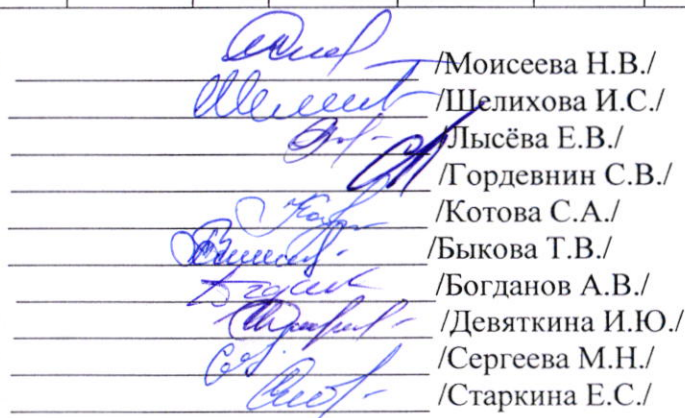 /Моисеева Н.В./
/Шелихова И.С./
/Лысёва Е.В./
/Гордевнин С.В./
/Котова С.А./
/Быкова Т.В./
/Богданов А.В./
/Девяткина И.Ю./
/Сергеева М.Н./
/Старкина Е.С./